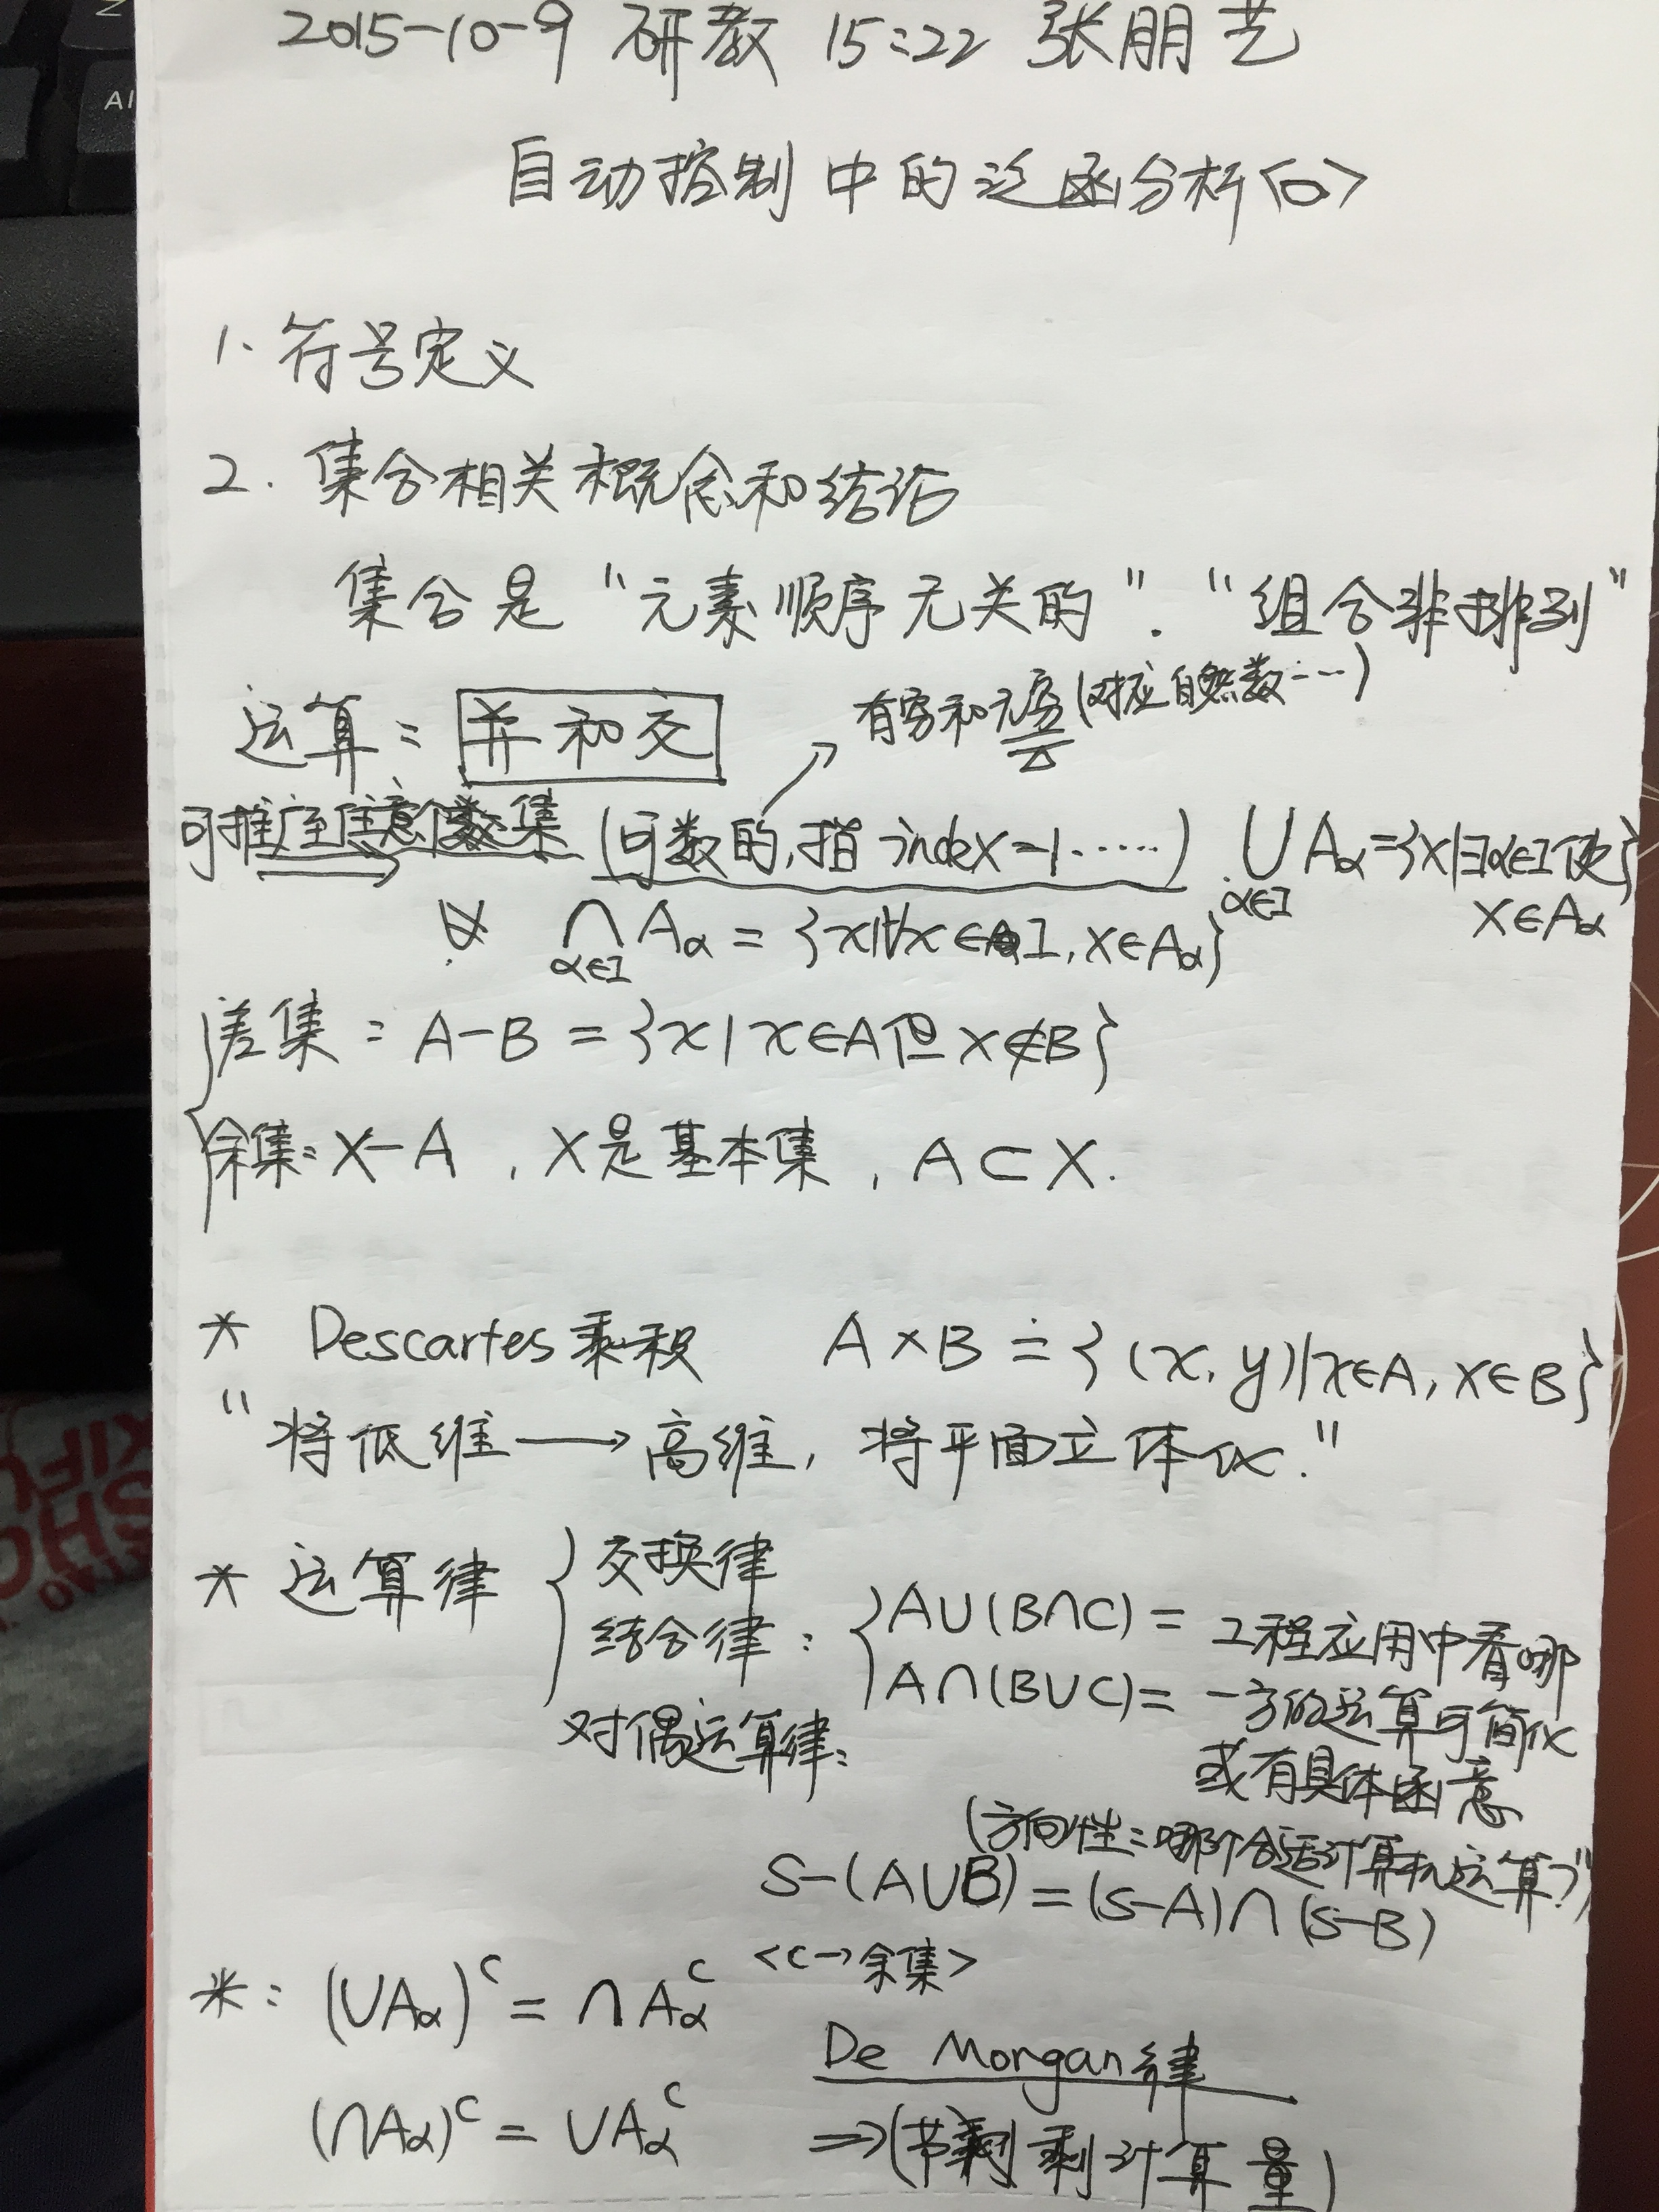 2015-10-9 研教 15:22 张朋艺
自动控制中的泛函分析<0>
1. 符号定义
2. 集合相关概念和结论
集合是“元素顺序无关的”.“组合非排列”
运算: 并和交
有穷和无穷(对应自然数…)
可推广至任意个数集 (可数的,指index-1……) ⋃_{α∈I} Aα={x|∃α∈I使
x∈Aα}
∀ ⋂_{α∈I} Aα = {x|∀x∈I, x∈Aα}
差集: A-B = {x | x∈A但x∉B}
余集: X-A , X是基本集, A⊂X.
* Descartes乘积 A×B ≐ {(x, y)|x∈A, x∈B}
“将低维→高维, 将平面立体化.”
* 运算律 { 交换律
结合律: { A∪(B∩C) = 工程应用中看哪
A∩(B∪C) = 一方的运算可简化
对偶运算律:
或有具体函意
(方向性:哪个合适计算机运算?)
S-(A∪B) = (S-A)∩(S-B)
*: (∪Aα)^c = ∩Aα^c <c→余集>
De Morgan律
(∩Aα)^c = ∪Aα^c ⇒(节剩计算量)